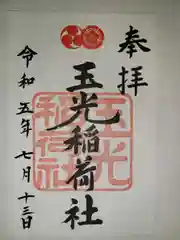 奉拝
玉光稲荷社
令和五年七月十三日
玉光
稲荷社